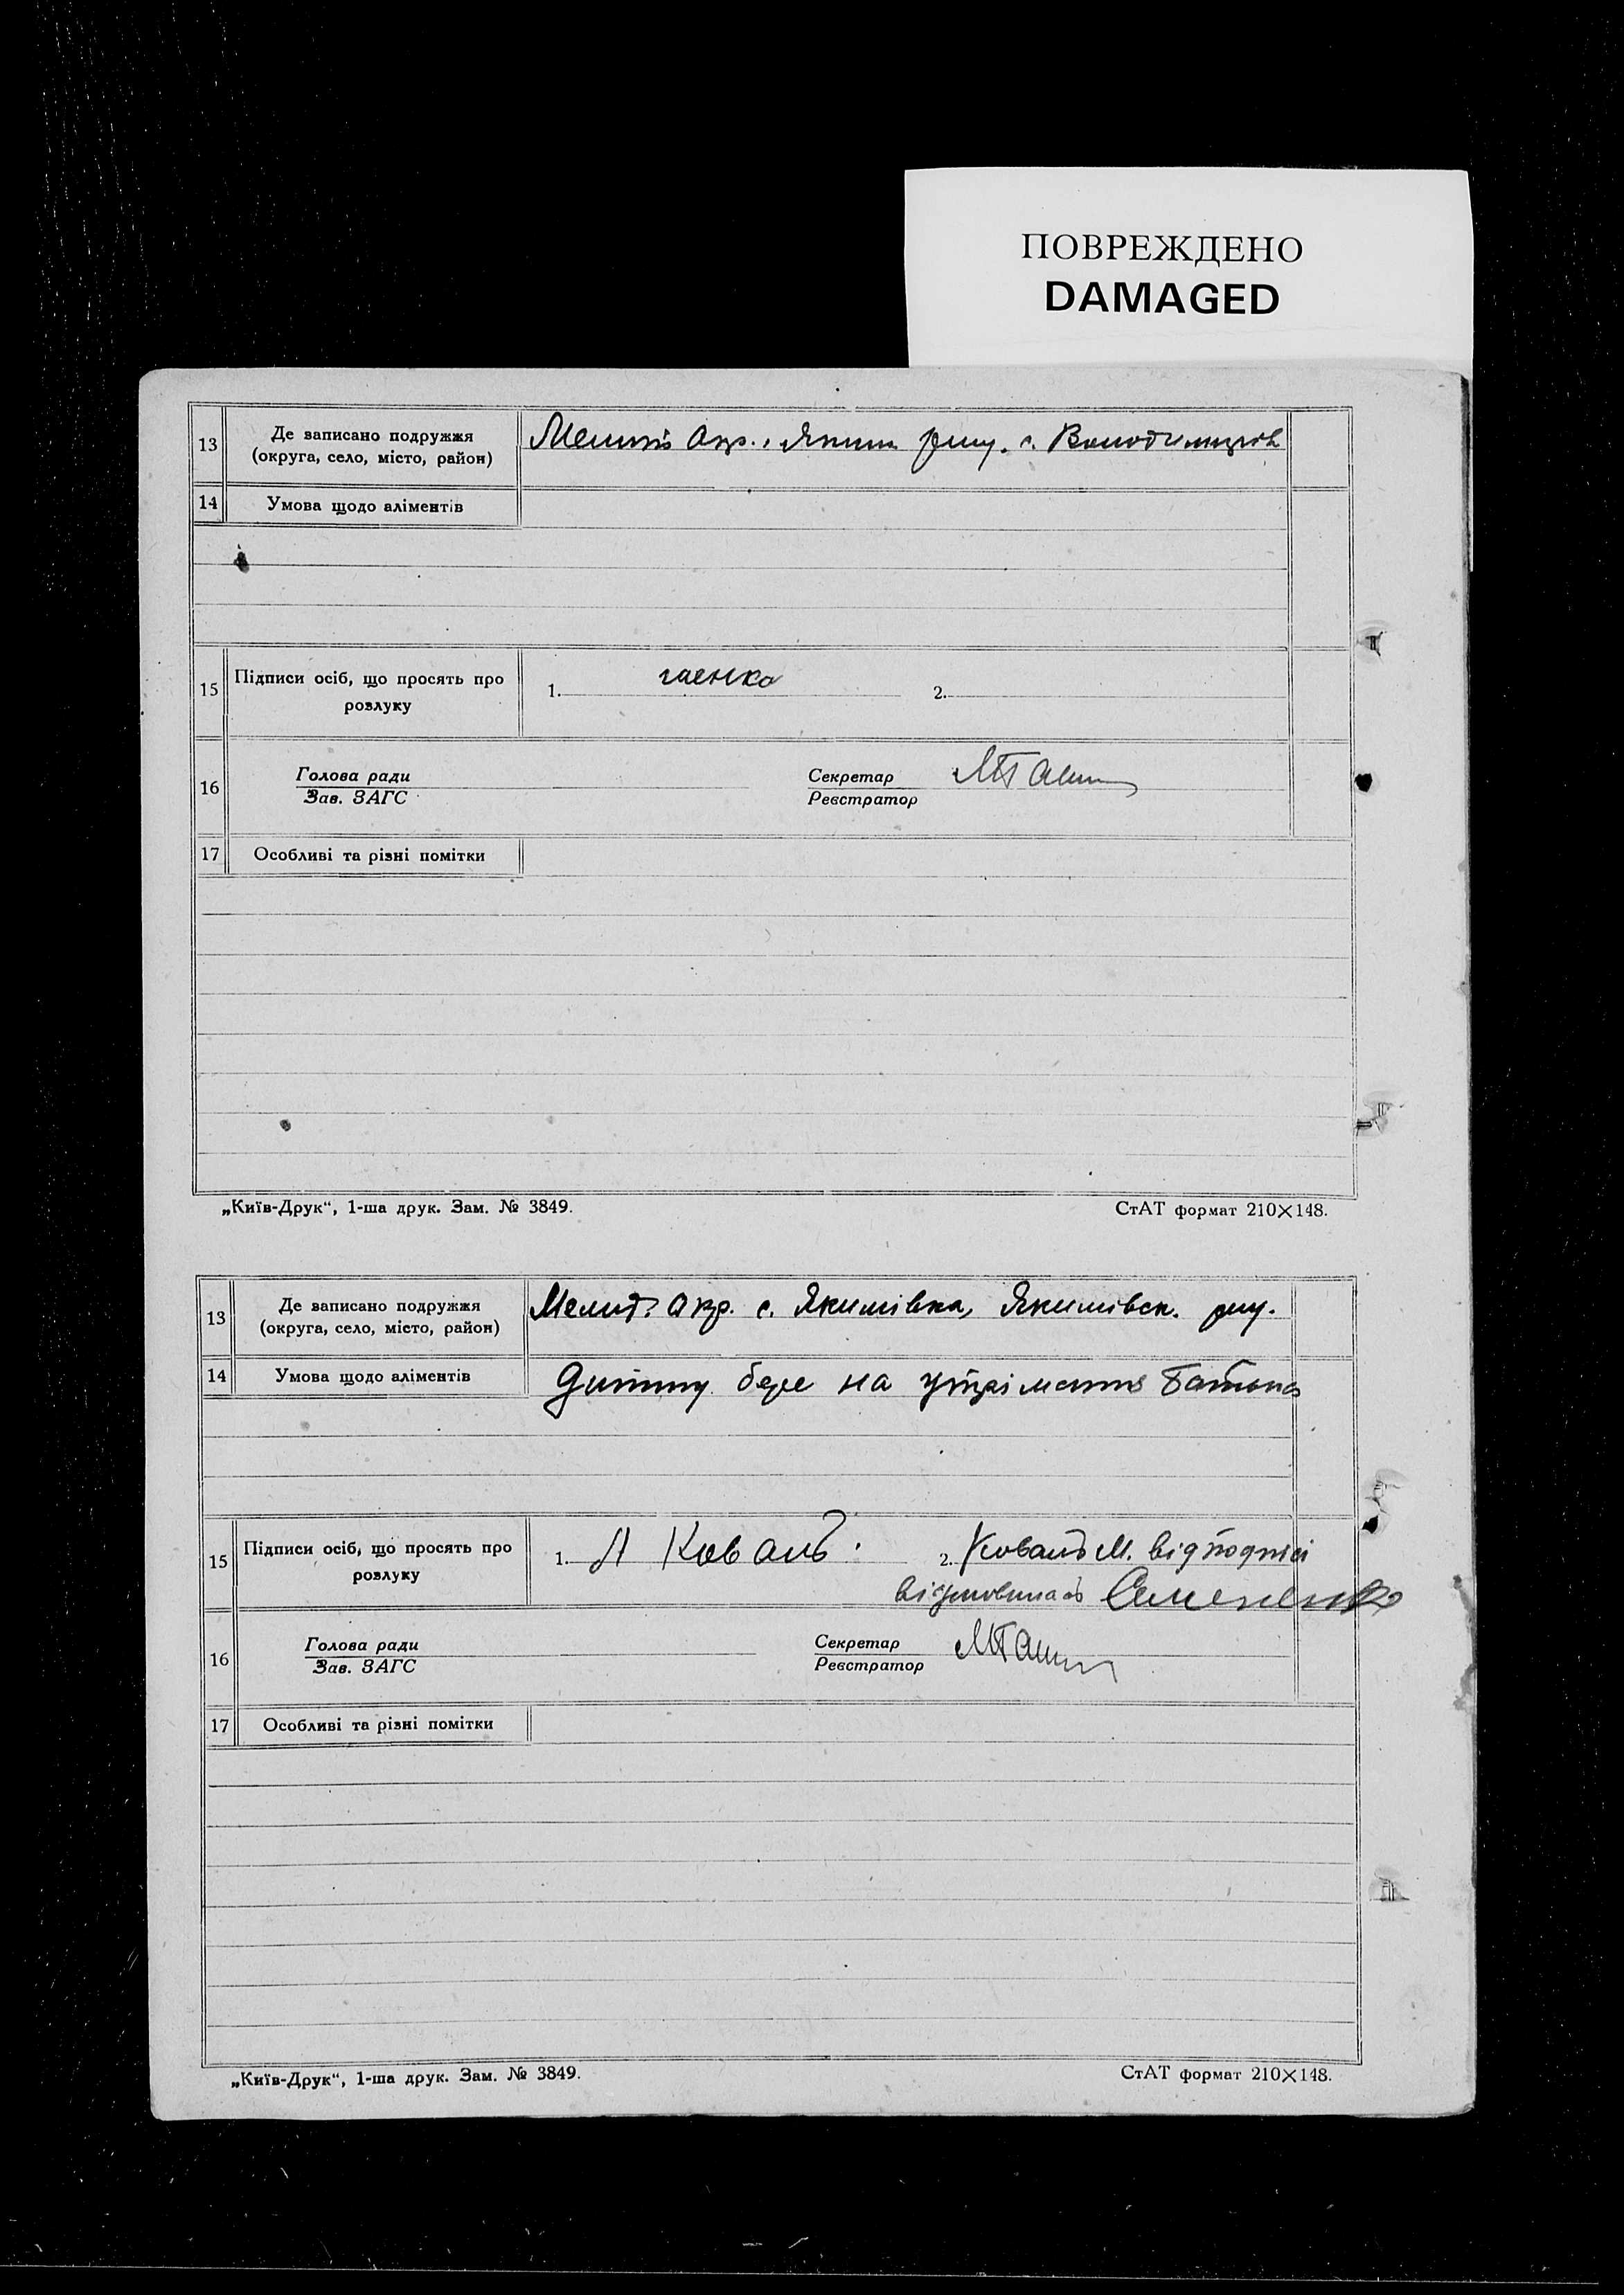 ПОВРЕЖДЕНО
DAMAGED
13
Де записано подружжя
(округа, село, місто, район)
Якиш
14
Умова щодо аліментів
15
Підписи осіб, що просять про
розлуку
1.
гаенко
2.
16
Голова ради
Зав. ЗАГС
Секретар
Реєстратор
17
Особливі та різні помітки
„Київ-Друк“, 1-ша друк. Зам. № 3849.
СтАТ формат 210×148.
13
Де записано подружжя
(округа, село, місто, район)
Мелит. окр. с. Якимівка, Якимівск. рну.
14
Умова щодо аліментів
Дитину бере на утріманнє батько
15
Підписи осіб, що просять про
розлуку
1. А Коваль.
2. Коваль М. від подписі
відмовилась Семененко
16
Голова ради
Зав. ЗАГС
Секретар
Реєстратор
17
Особливі та різні помітки
„Київ-Друк“, 1-ша друк. Зам. № 3849.
СтАТ формат 210×148.